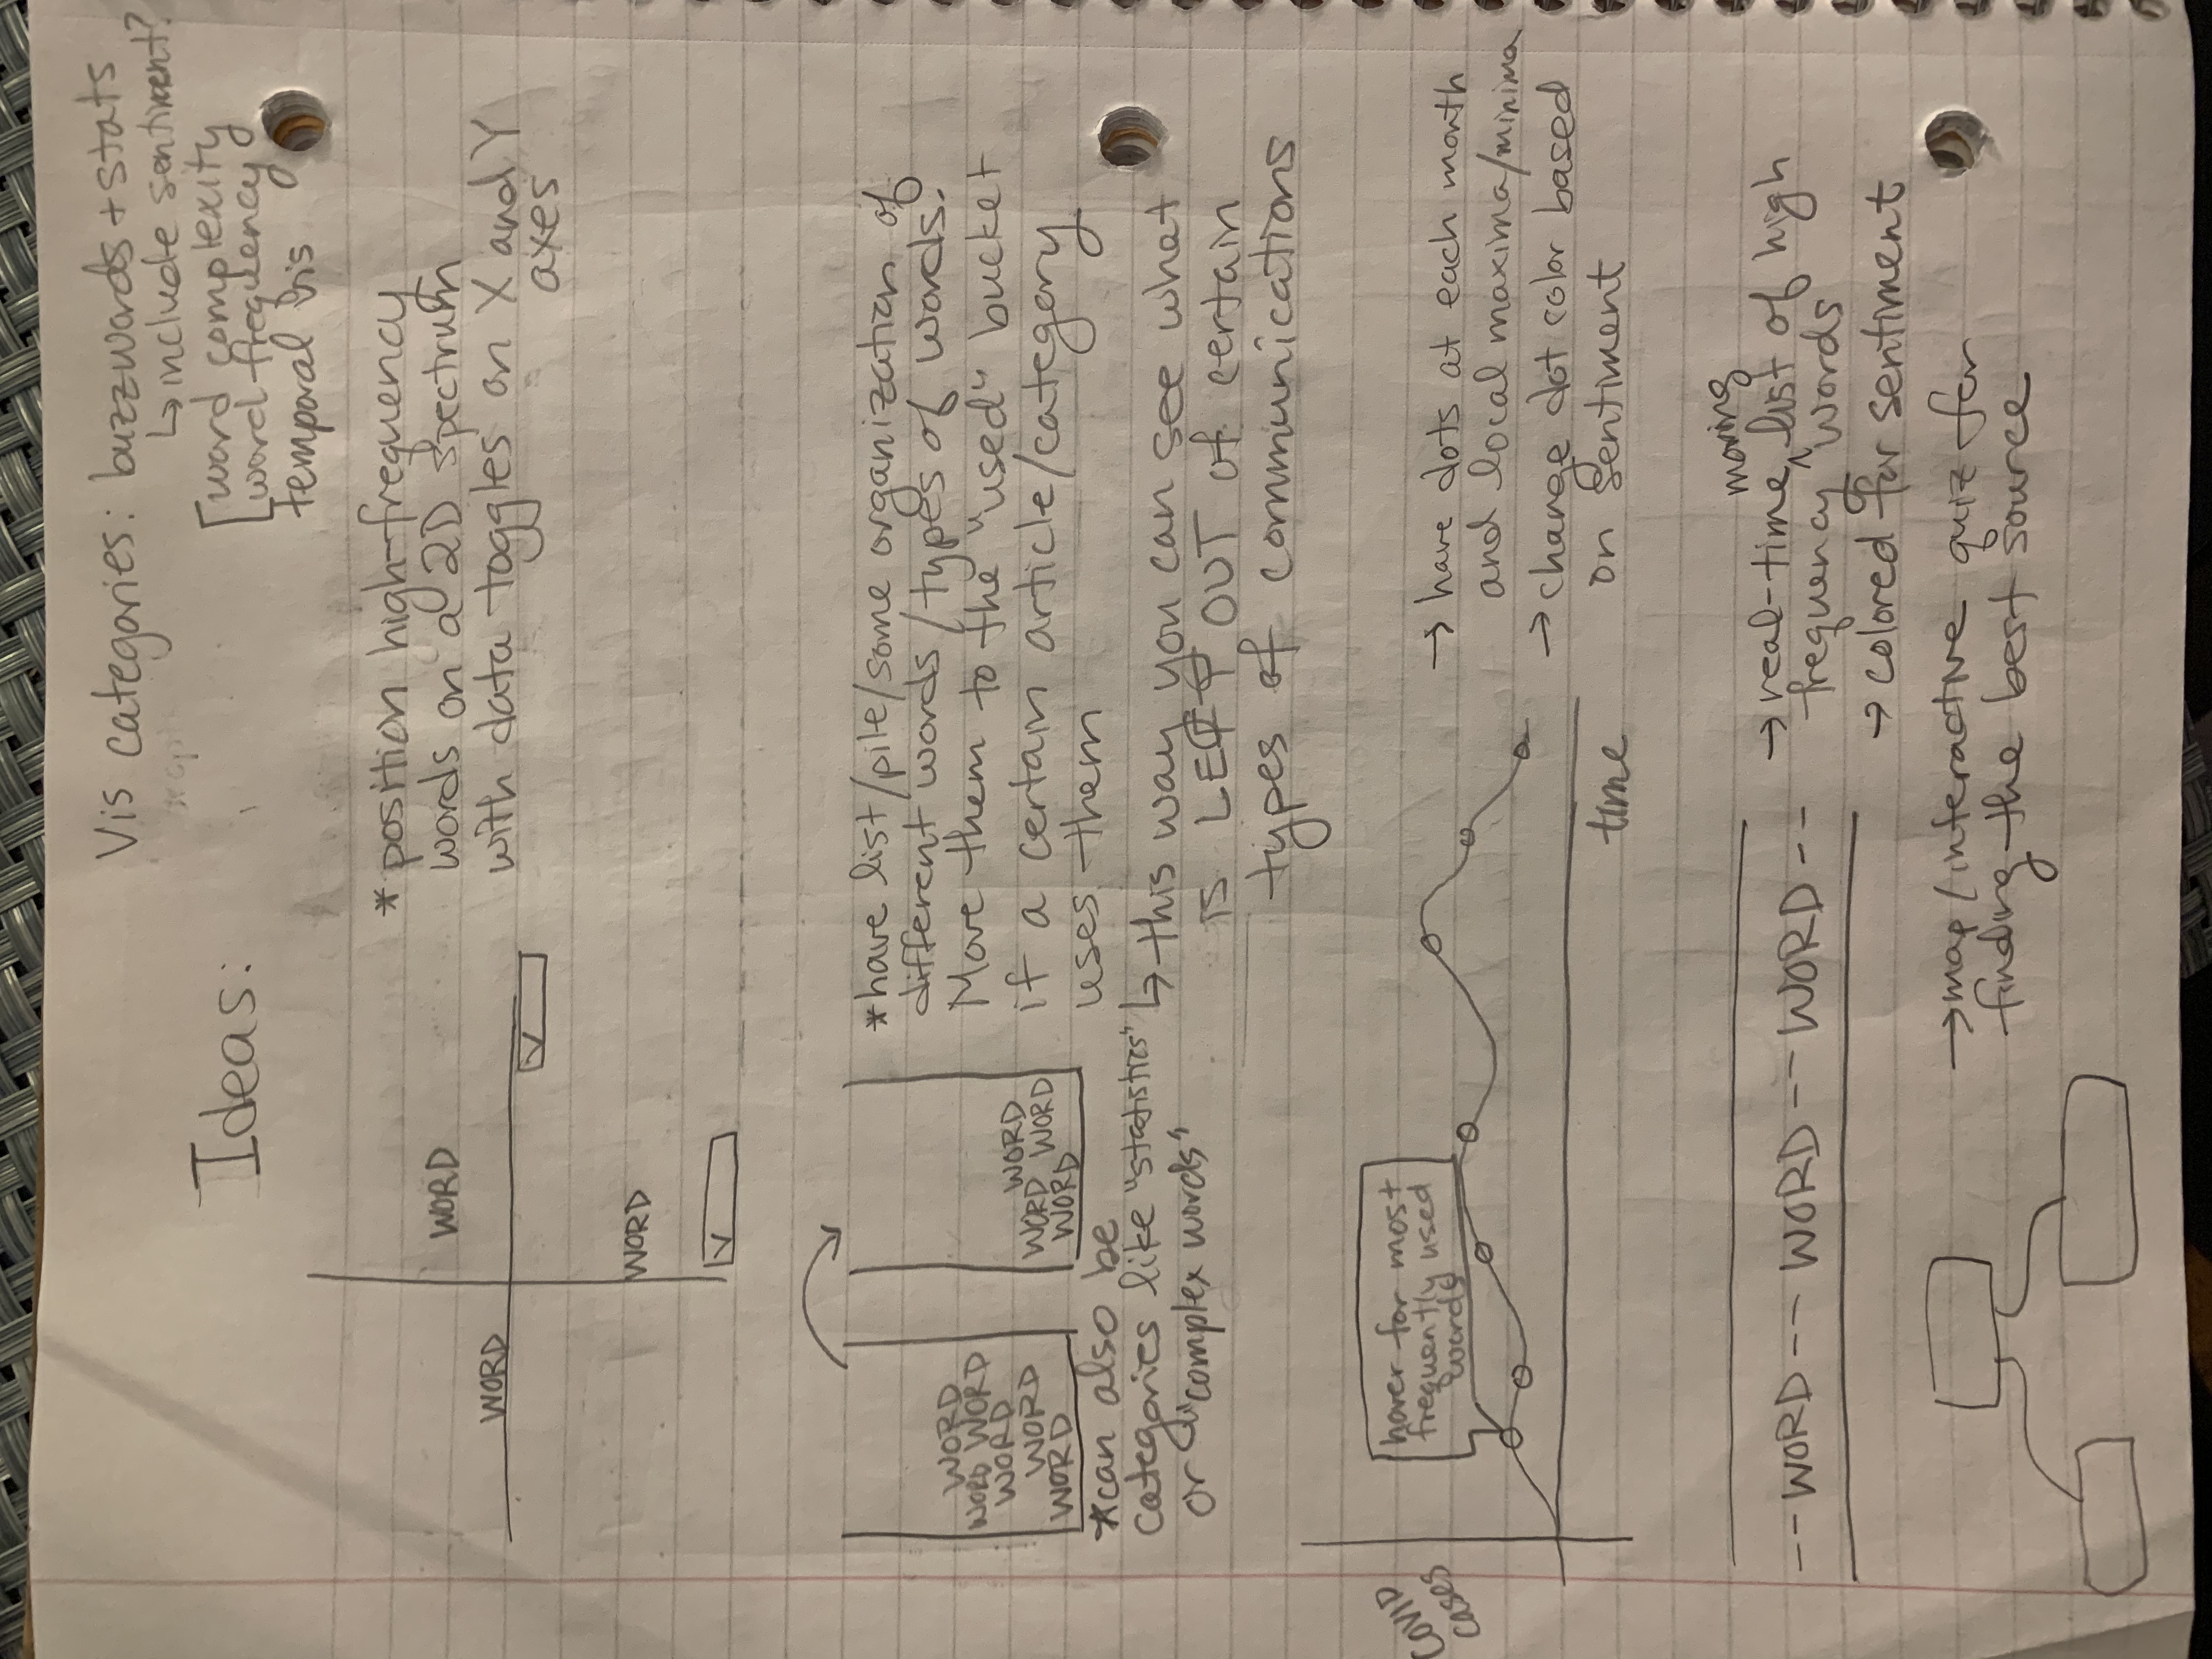 Vis categories: buzzwords + stats
↳ include sentiment?
word complexity
word frequency
temporal vis
Ideas:
WORD
WORD
WORD
* position high-frequency
words on a 2D spectrum
with data toggles on X and Y
axes
WORD
WORD WORD
WORD
WORD
WORD
WORD
WORD WORD
WORD
*can also be
categories like "statistics"
or "complex words"
*have list/pile/some organization of
different words/types of words.
Move them to the "used" bucket
if a certain article/category
uses them
↳ this way you can see what
is LEFT OUT of certain
types of communications
COVID
cases
hover for most
frequently used
words
time
→ have dots at each month
and local maxima/minima
→ change dot color based
on sentiment
--WORD-- WORD -- WORD --
→ real-time moving list of high
frequency words
→ colored for sentiment
→ map/interactive quiz for
finding the best source